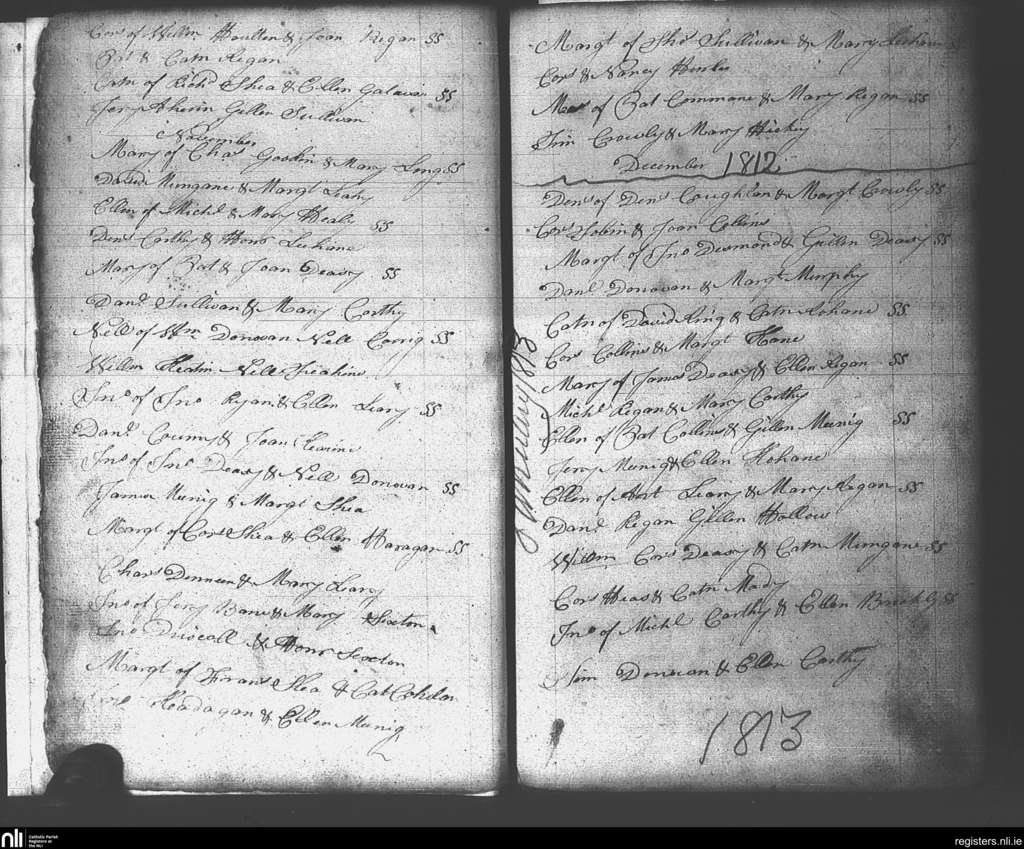 Cors of Willm Houlten & Joan Regan SS
Bat & Catn Regan
Catn of Richd Shea & Ellen SS
Jery Aherin Gillen Sullivan
November
Mary of Chas & Mary Long SS
David Mungane & Margt Leary
Ellen of Michl & Mary Healy SS
Dens Carthy & Hons Lehane
Mary of Bat & Joan Deasy SS
Danl Sullivan & Mary Carthy
Nell of Wm Donovan Nell Corrig SS
Willm Keatin Nell
Jno of Jno Ryan & Ellen Leary SS
Danl & Joan
Jno of Jno Deasy & Nell Donovan SS
James Munig & Margt Shea
Margt of Cors Shea & Ellen Haragan SS
Chars Denneen & Mary Leary
Jno of Jery Bane & Mary Sexton
Jno Driscoll & Hons Sexton
Margt of Frans Shea & Cat
Headagan & Ellen Munig
Margt of Thos Sullivan & Mary
Cors & Nancy
of Bat Commane & Mary Regan SS
Tim Crowly & Mary Hickey
December 1812
Dens of Dens Coughlan & Margt Crowly SS
Cors Tobin & Joan Collins
Margt of Jno Desmond & Gillen Deasy SS
Danl Donovan & Margt Murphy
Catn of David King & Catn Kohane SS
Cors Collins & Margt Hone
Mary of James Deasy & Ellen Regan SS
Michl Regan & Mary Carthy
Ellen of Bat Collins & Gillen Munig SS
Jery Munig & Ellen Kohane
Ellen of Leary & Mary Regan SS
Danl Regan Gillen Hallow
Willm Cors Deasy & Catn Mungane SS
Cors Heas & Catn Mady
Jno of Michl Carthy & Ellen SS
Donovan & Ellen Carthy
1813
January 1813
nli
Catholic Parish
Registers at
the NLI
registers.nli.ie